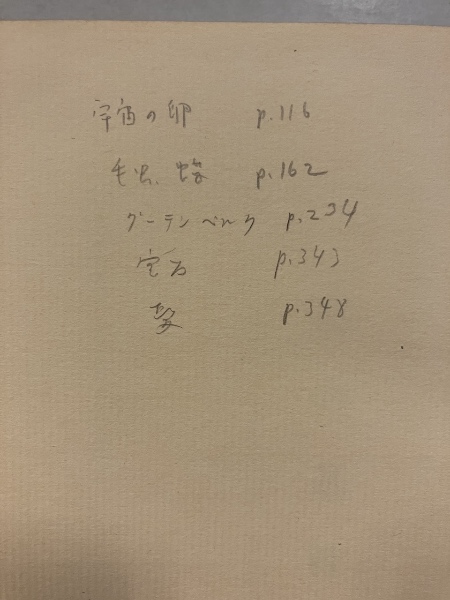 宇宙の卵 p.116
毛虫、蝶 p.162
グーテンベルク p.234
宝石 p.343
髪 p.348